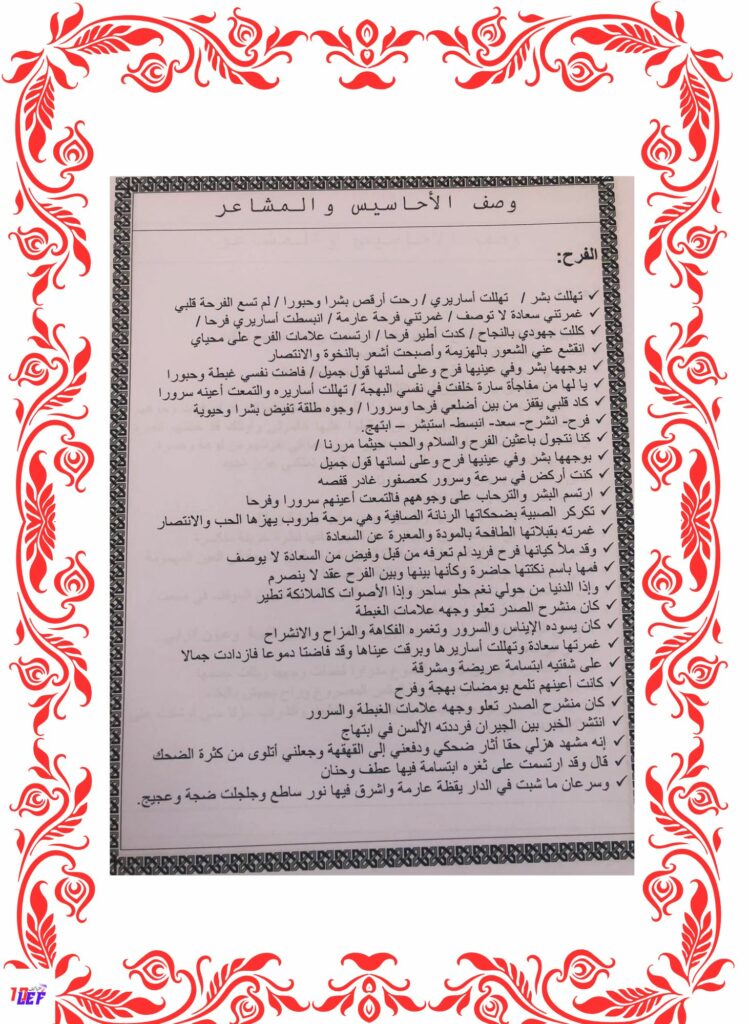 وصف الأحاسيس والمشاعر
الفرح:
✓ تهللت بشر / تهللت أساريري / رحت أرقص بشرا وحبورا / لم تسع الفرحة قلبي
✓ غمرتني سعادة لا توصف / غمرتني فرحة عارمة / انبسطت أساريري فرحا /
✓ كللت جهودي بالنجاح / كدت أطير فرحا / ارتسمت علامات الفرح على محياي
✓ انقشع عني الشعور بالهزيمة وأصبحت أشعر بالنخوة والانتصار
✓ بوجهها بشر وفي عينيها فرح وعلى لسانها قول جميل / فاضت نفسي غبطة وحبورا
✓ يا لها من مفاجأة سارة خلفت في نفسي البهجة / تهللت أساريره والتمعت أعينه سرورا
✓ كاد قلبي يقفز من بين أضلعي فرحا وسرورا / وجوه طلقة تفيض بشرا وحيوية
✓ فرح- انشرح- سعد- انبسط- استبشر – ابتهج.
✓ كنا نتجول باعثين الفرح والسلام والحب حيثما مررنا /
✓ بوجهها بشر وفي عينيها فرح وعلى لسانها قول جميل
✓ كنت أركض في سرعة وسرور كعصفور غادر قفصه
✓ ارتسم البشر والترحاب على وجوههم فالتمعت أعينهم سرورا وفرحا
✓ تكركر الصبية بضحكاتها الرنانة الصافية وهي مرحة طروب يهزها الحب والانتصار
✓ غمرته بقبلاتها الطافحة بالمودة والمعبرة عن السعادة
✓ وقد ملأ كيانها فرح فريد لم تعرفه من قبل وفيض من السعادة لا يوصف
✓ فمها باسم نكتتها حاضرة وكأنها بينها وبين الفرح عقد لا ينصرم
✓ وإذا الدنيا من حولي نغم حلو ساحر وإذا الأصوات كالملائكة تطير
✓ كان منشرح الصدر تعلو وجهه علامات الغبطة
✓ كان يسوده الإيناس والسرور وتغمره الفكاهة والمزاح والانشراح
✓ غمرتها سعادة وتهللت أساريرها وبرقت عيناها وقد فاضتا دموعا فازدادت جمالا
✓ على شفتيه ابتسامة عريضة ومشرقة
✓ كانت أعينهم تلمع بومضات بهجة وفرح
✓ كان منشرح الصدر تعلو وجهه علامات الغبطة والسرور
✓ انتشر الخبر بين الجيران فرددته الألسن في ابتهاج
✓ إنه مشهد هزلي حقا أثار ضحكي ودفعني إلى القهقهة وجعلني أتلوى من كثرة الضحك
✓ قال وقد ارتسمت على ثغره ابتسامة فيها عطف وحنان
✓ وسرعان ما شبت في الدار يقظة عارمة واشرق فيها نور ساطع وجلجلت ضجة وعجيج.